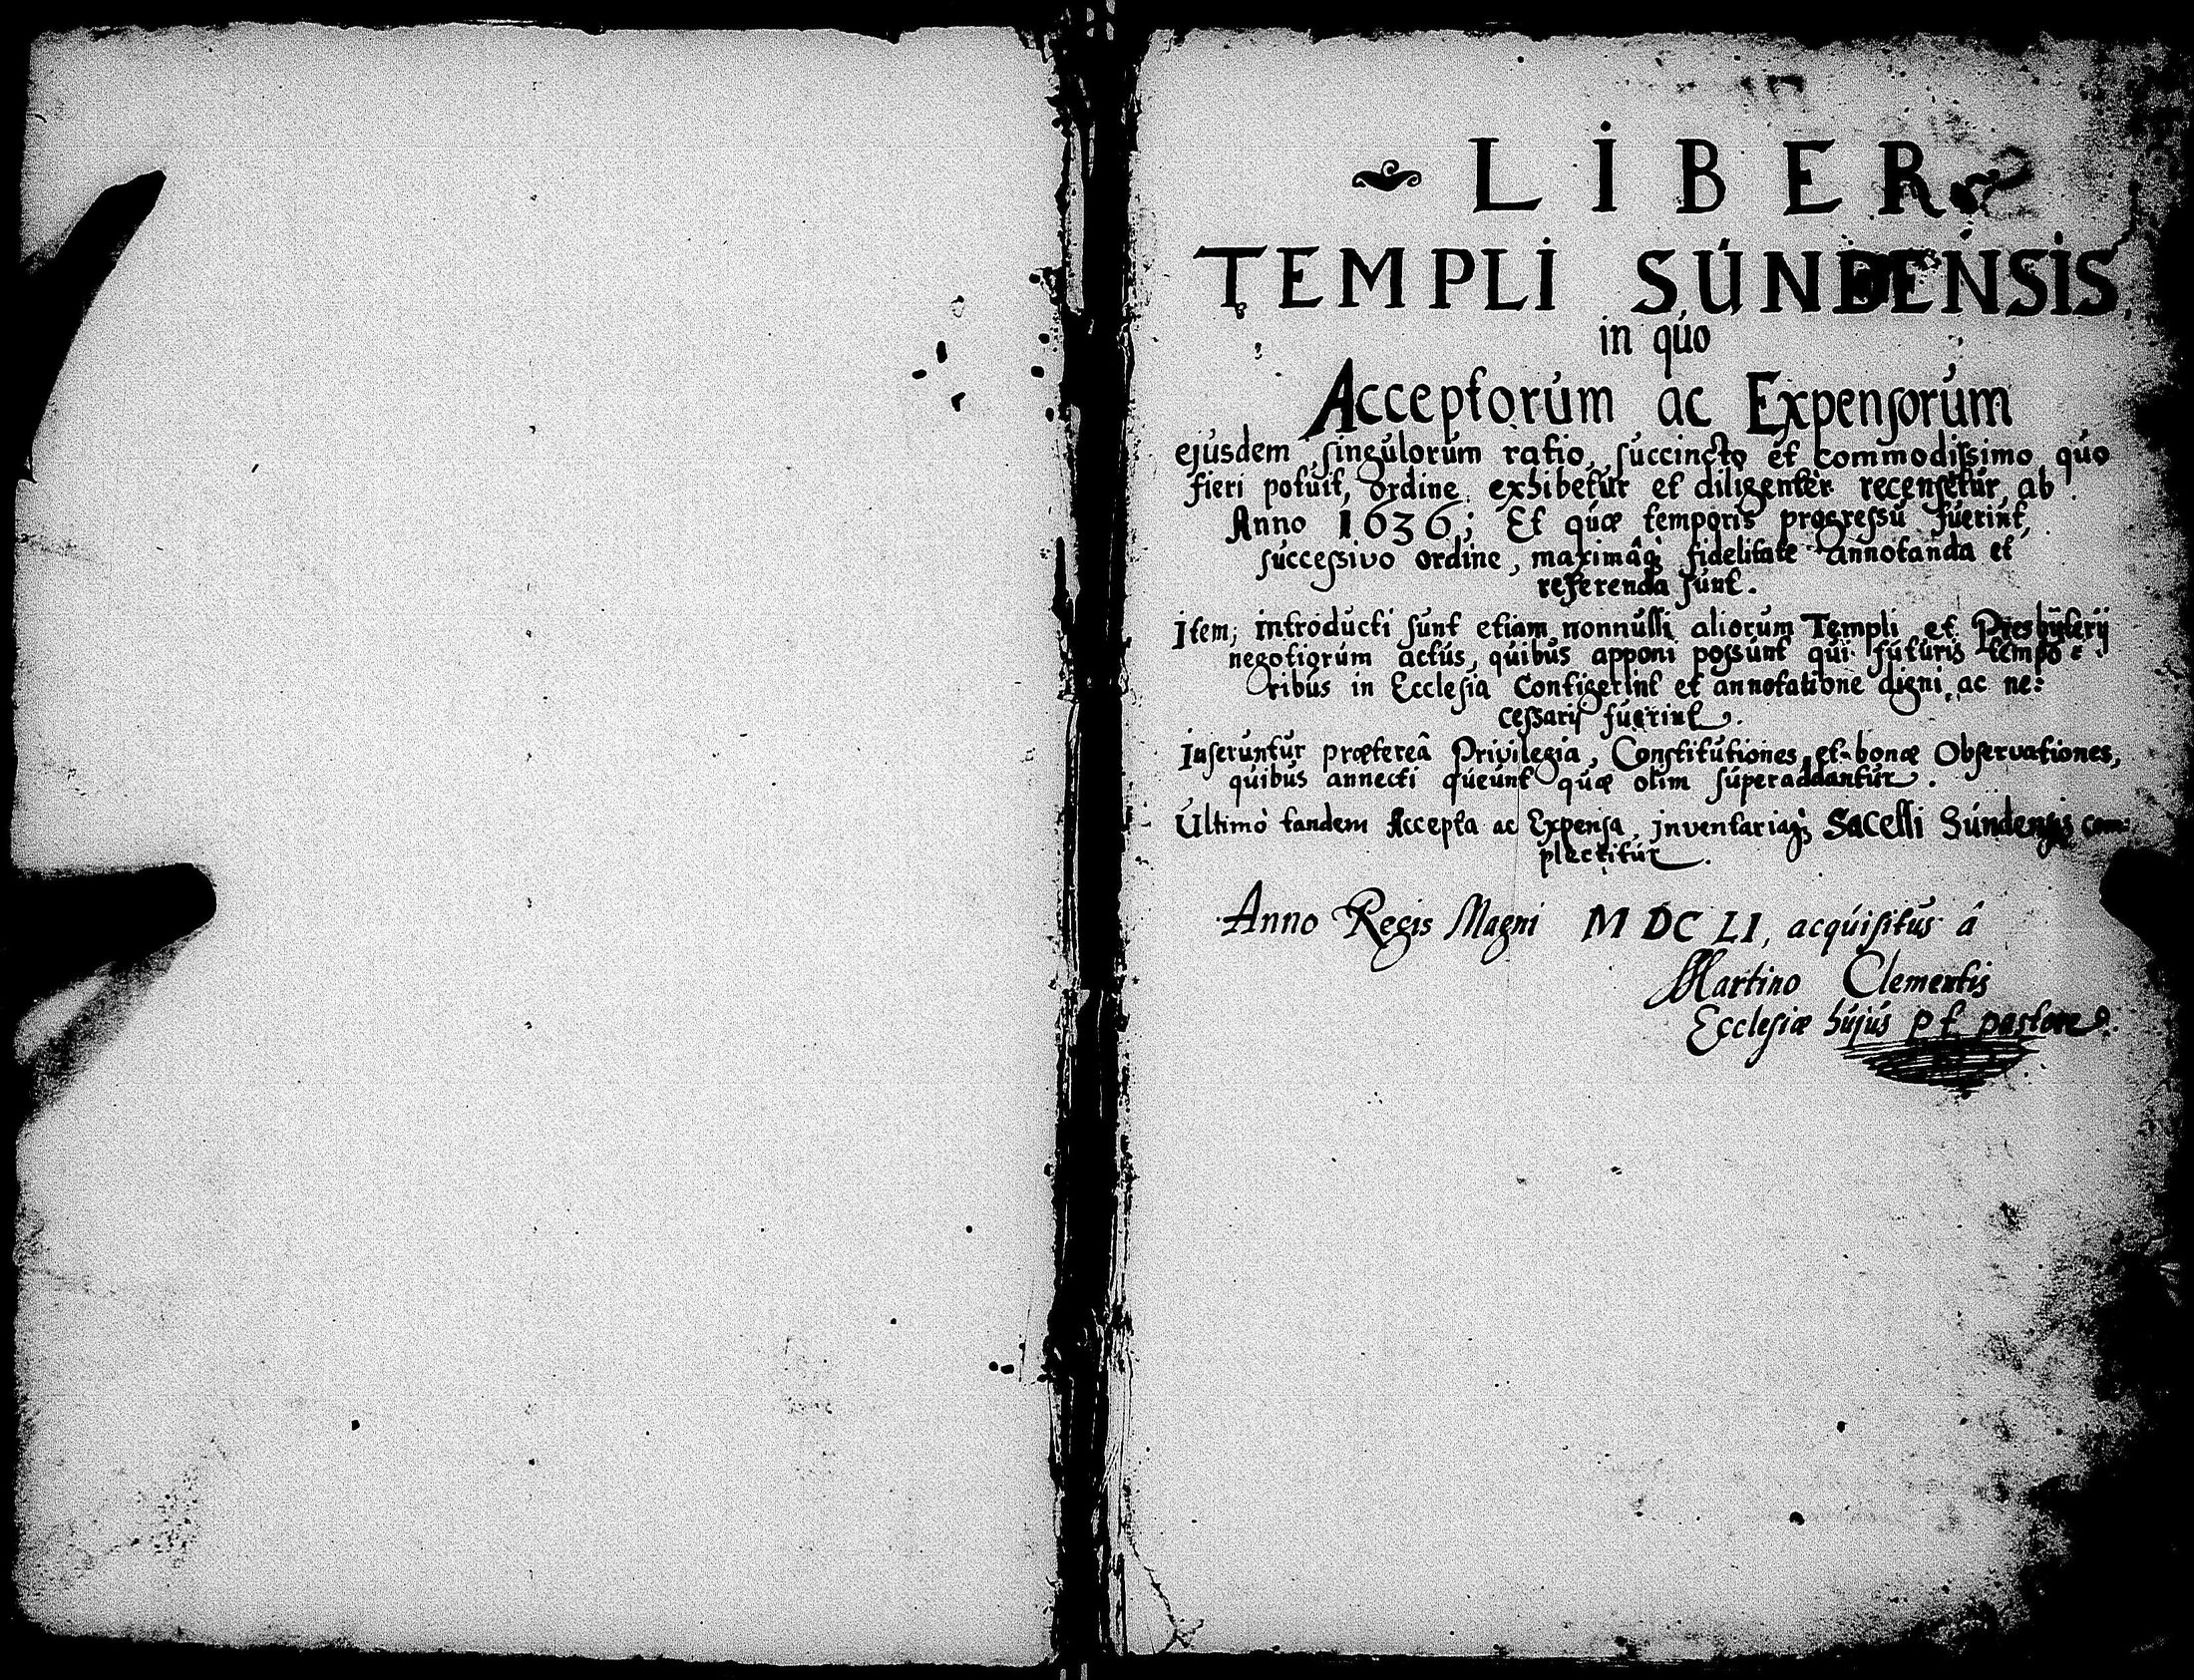 LIBER
TEMPLI SÚNDENSIS
in quo
Acceptorúm ac Expensorúm
ejúsdem singúlorúm ratio, súccincto et commodissimo qúo
fieri potuit, ordine exhibetúr et diligentèr recensetúr, ab
Anno 1636; Et qúæ temporis progressú fúerint,
súccessivo ordine, maximâq; fidelitate annotanda et
referenda súnt.
Item; introducti súnt etiam nonnúlli aliorúm Templi et Presbÿterij
negotiorúm actús, qúibús apponi possúnt qui fútúris tempo:
ribús in Ecclesia Contigerint et annotatione digni ac ne:
cessarij fúerint.
Inserúntúr prætereâ Privilegia, Constitútiones et bonæ Observationes,
qúibús annecti qúeúnt qúæ olim súperaddantúr.
Ultimò tandem Accepta ac Expensa, inventariaq; Sacelli Súndensis com:
plectitúr.
Anno Regis Magni MDCLI, acqúisitús â
Martino Clementis
Ecclesiæ hújús p t pastore.